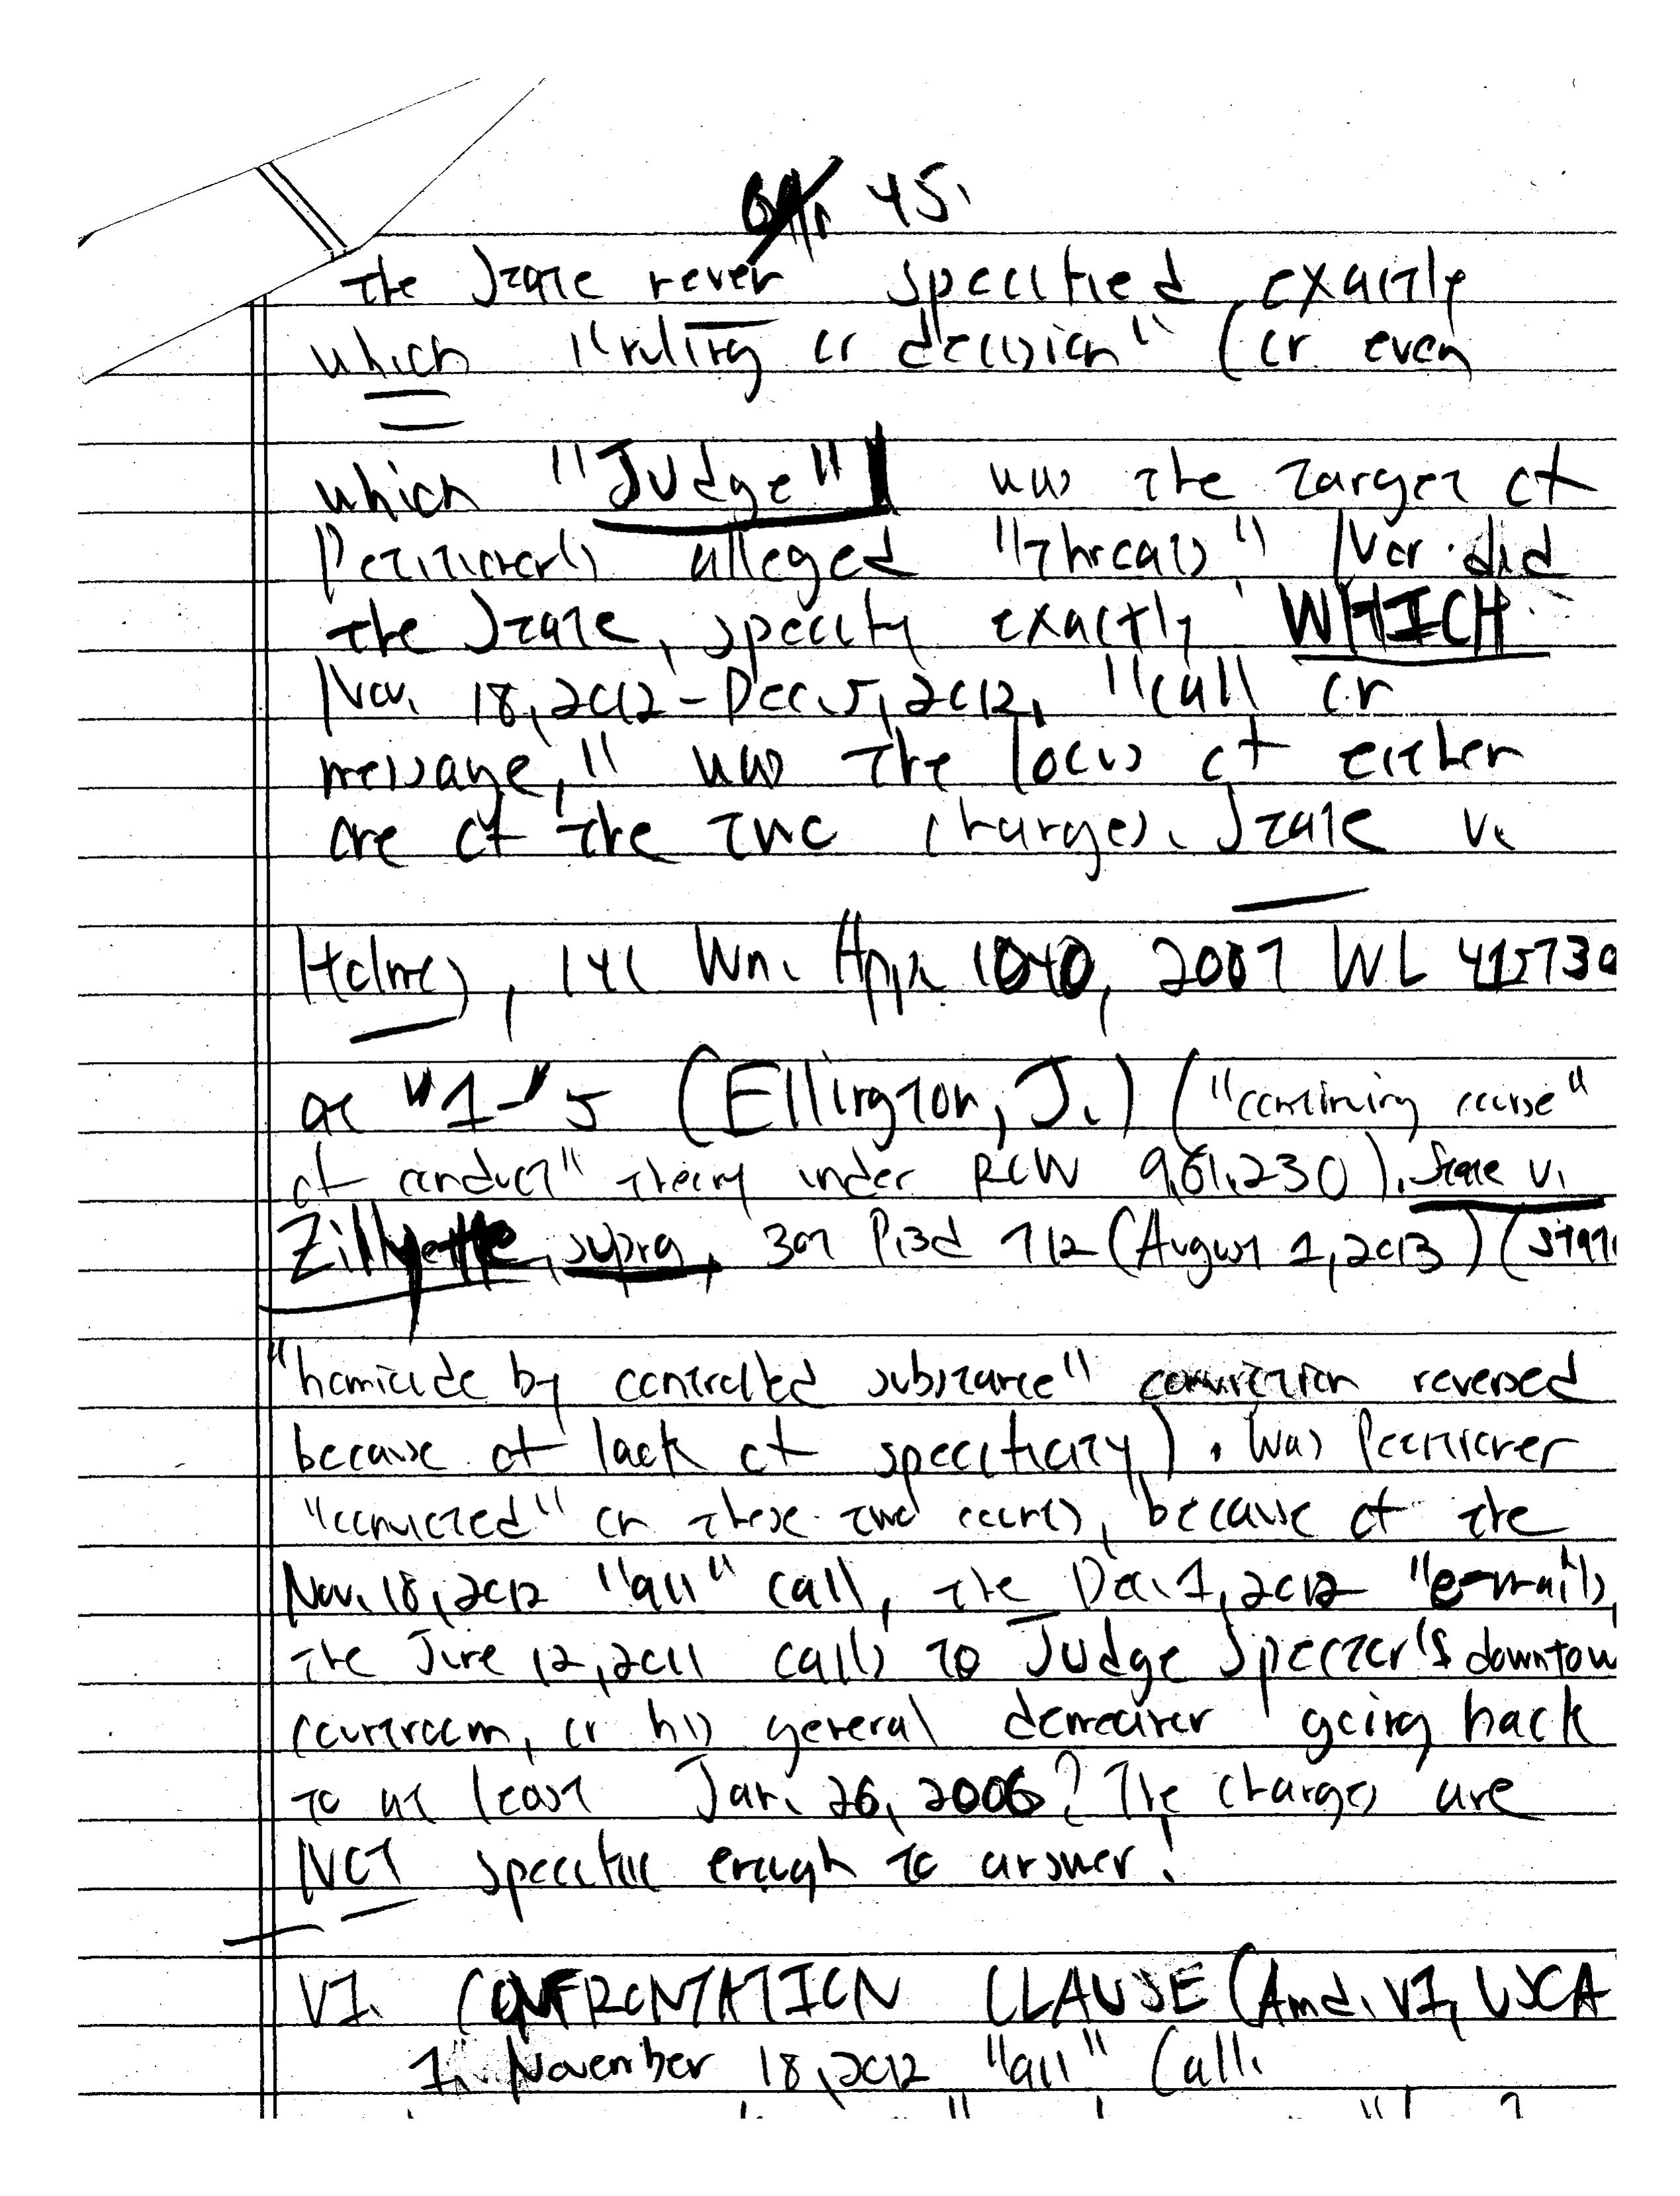 45.
The State never specified exactly
which "ruling or decision" (or even
which "Judge" was the target of
Petitioner's alleged "threats." Nor did
the State, specify exactly WHICH
Nov. 18, 2012 - Dec. 5, 2012, "call or
message," was the locus of either
one of the two charges. State v.
Holmes, 141 Wn. App. 1040, 2007 WL 415730
at "1-" 5 (Ellington, J.) ("continuing course"
of conduct" theory under RCW 9.61.230). State v.
Zillyette, supra, 307 P.3d 712 (August 1, 2013) (
"homicide by controlled substance" conviction reversed
because of lack of specificity). Was Petitioner
"convicted" on these two counts, because of the
Nov. 18, 2012 "911" call, the Dec. 1, 2012 "e-mails,
the June 12, 2011 calls to Judge Spector's downtow
courtroom, or his general demeanor going back
to at least Jan. 26, 2006? The charges are
NOT specific enough to answer!
VI. CONFRONTATION CLAUSE (Amd. VI, USCA
1. November 18, 2012 "911" Call.